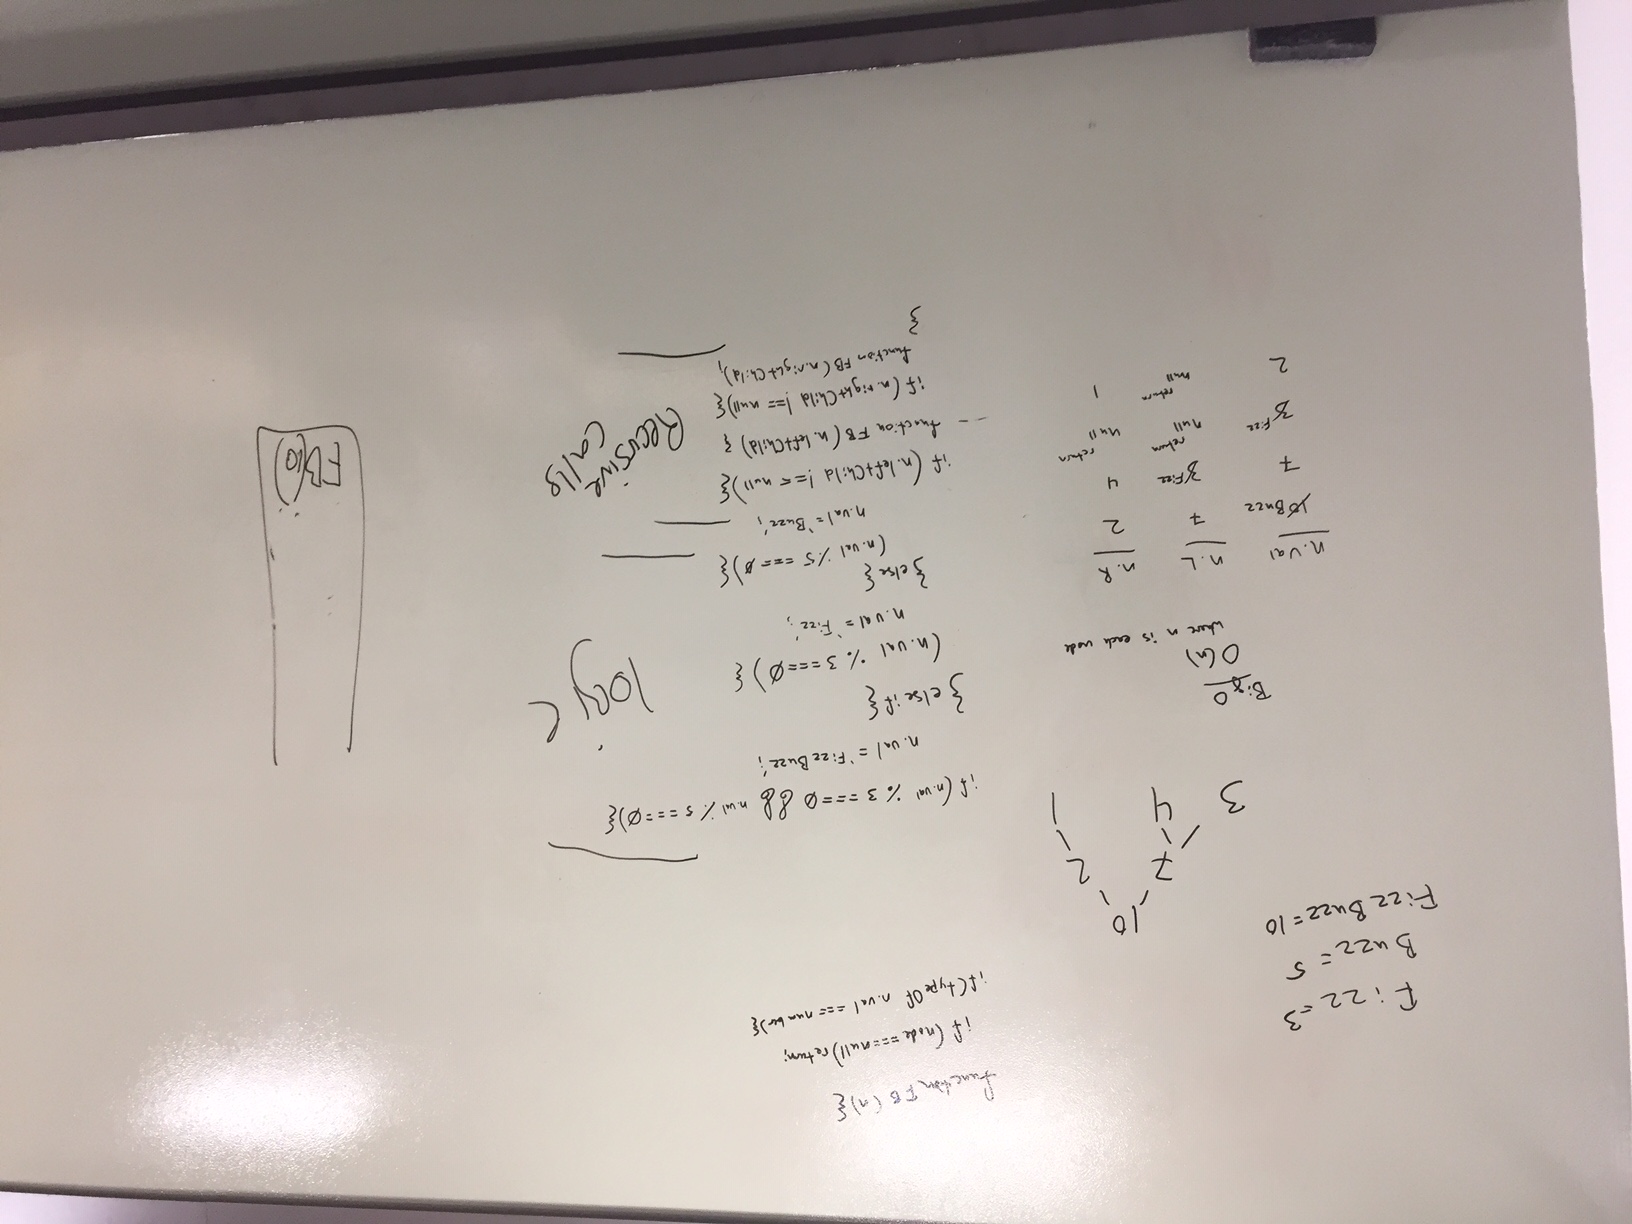 Fizz=3
Buzz=5
FizzBuzz=10
10
7 2
3 4 1
Big O
O(n)
where n is each node
n.Val n.L n.R
10 Buzz 7 2
7 3 Fizz 4
3 Fizz null return null return
2 null return 1
function FB (n){
if (node===null) return;
if(typeOf n.val === number){
if (n.val % 3 ===0 && n.val % 5 ===0){
n.val = 'FizzBuzz';
} else if {
(n.val % 3===0) {
n.val = 'Fizz';
} else {
(n.val % 5 === 0) {
n.val = 'Buzz';
if (n.leftChild !== null){
-- function FB (n.leftChild) {
if (n.rightChild !== null){
function FB (n.rightChild);
}
logic
Recursive
calls
FB(10)